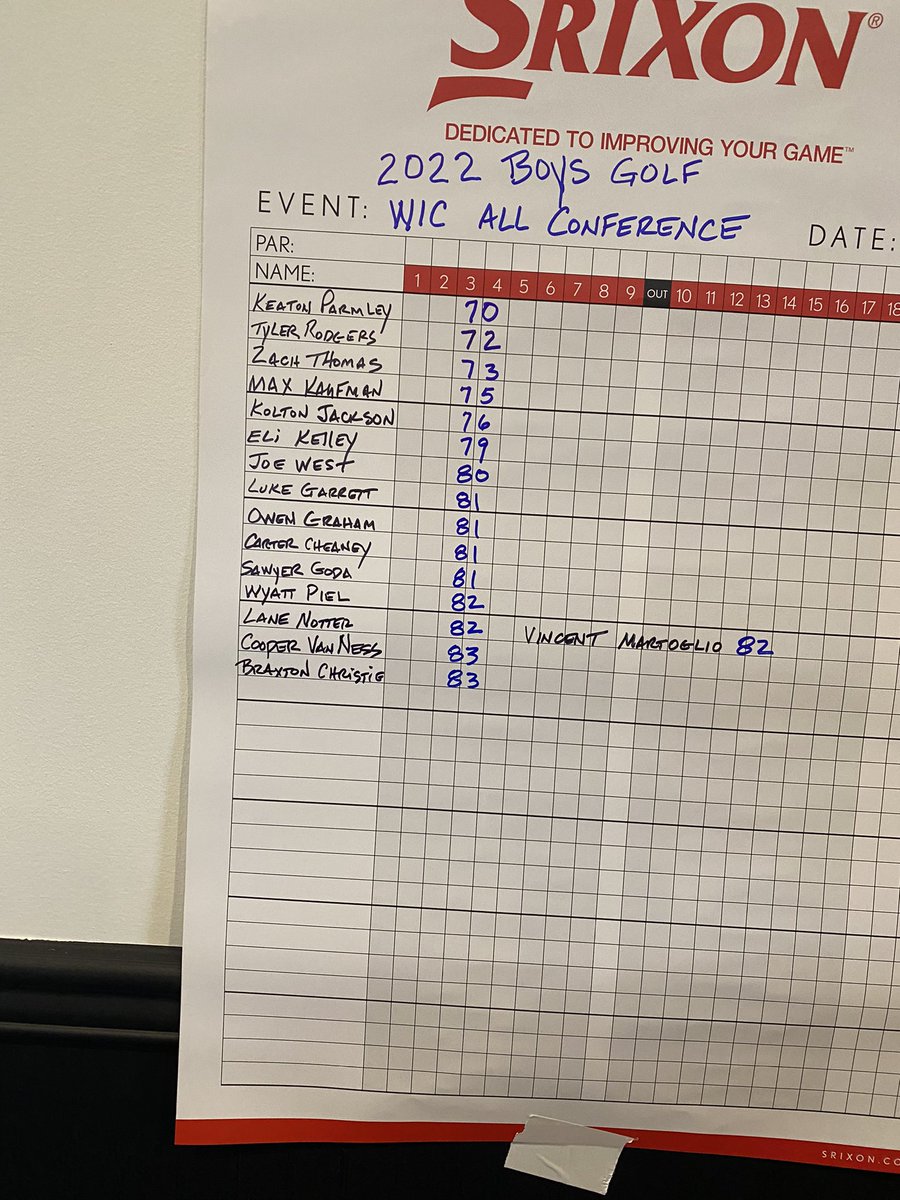 SRIXON®
DEDICATED TO IMPROVING YOUR GAME™
2022 BOYS GOLF
EVENT: WIC ALL CONFERENCE DATE:
PAR:
NAME: 1 2 3 4 5 6 7 8 9 OUT 10 11 12 13 14 15 16 17 18
KEATON PARMLEY 70
TYLER RODGERS 72
ZACH THOMAS 73
MAX KAUFMAN 75
KOLTON JACKSON 76
ELI KELLEY 79
JOE WEST 80
LUKE GARRETT 81
OWEN GRAHAM 81
CARTER CHEANEY 81
SAWYER GODA 81
WYATT PIEL 82
LANE NOTTER 82 VINCENT MARTOGLIO 82
COOPER VANNESS 83
BRAXTON CHRISTIE 83
SRIXON.CO